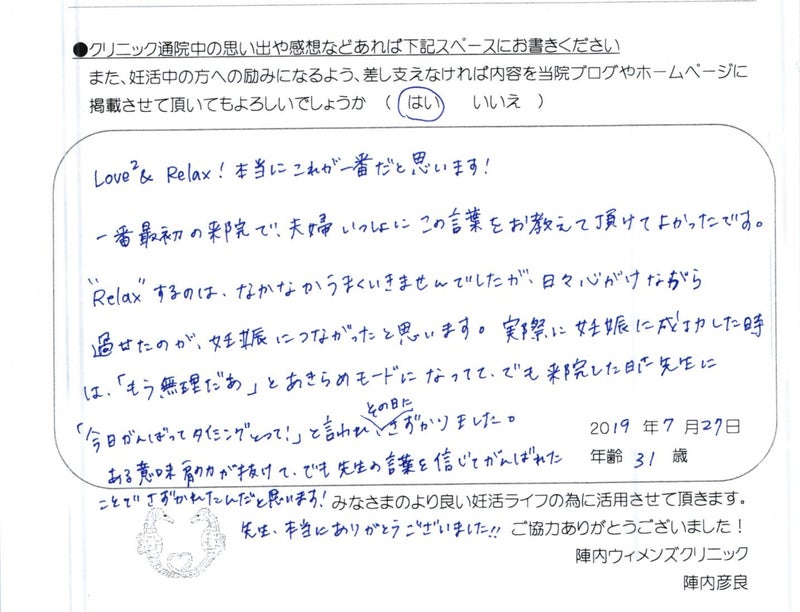 ●クリニック通院中の思い出や感想などあれば下記スペースにお書きください
また、妊活中の方への励みになるよう、差し支えなければ内容を当院ブログやホームページに
掲載させて頂いてもよろしいでしょうか ( はい いいえ )
Love² & Relax！本当にこれが一番だと思います！
一番最初の来院で、夫婦いっしょにこの言葉をお教えて頂けてよかったです。
"Relax"するのは、なかなかうまくいきませんでしたが、日々心がけながら
過せたのが、妊娠につながったと思います。実際に妊娠に成功した時
は、「もう無理だぁ」とあきらめモードになってて、でも来院した日に先生に
「今日がんばってタイミングとって！」と言われ、その日にさずかりました。
ある意味肩の力が抜けて、でも先生の言葉を信じてがんばれた
ことでさずかれたんだと思います！
先生、本当にありがとうございました!!
2019 年 7 月 27日
年齢 31 歳
みなさまのより良い妊活ライフの為に活用させて頂きます。
ご協力ありがとうございました！
陣内ウィメンズクリニック
陣内彦良